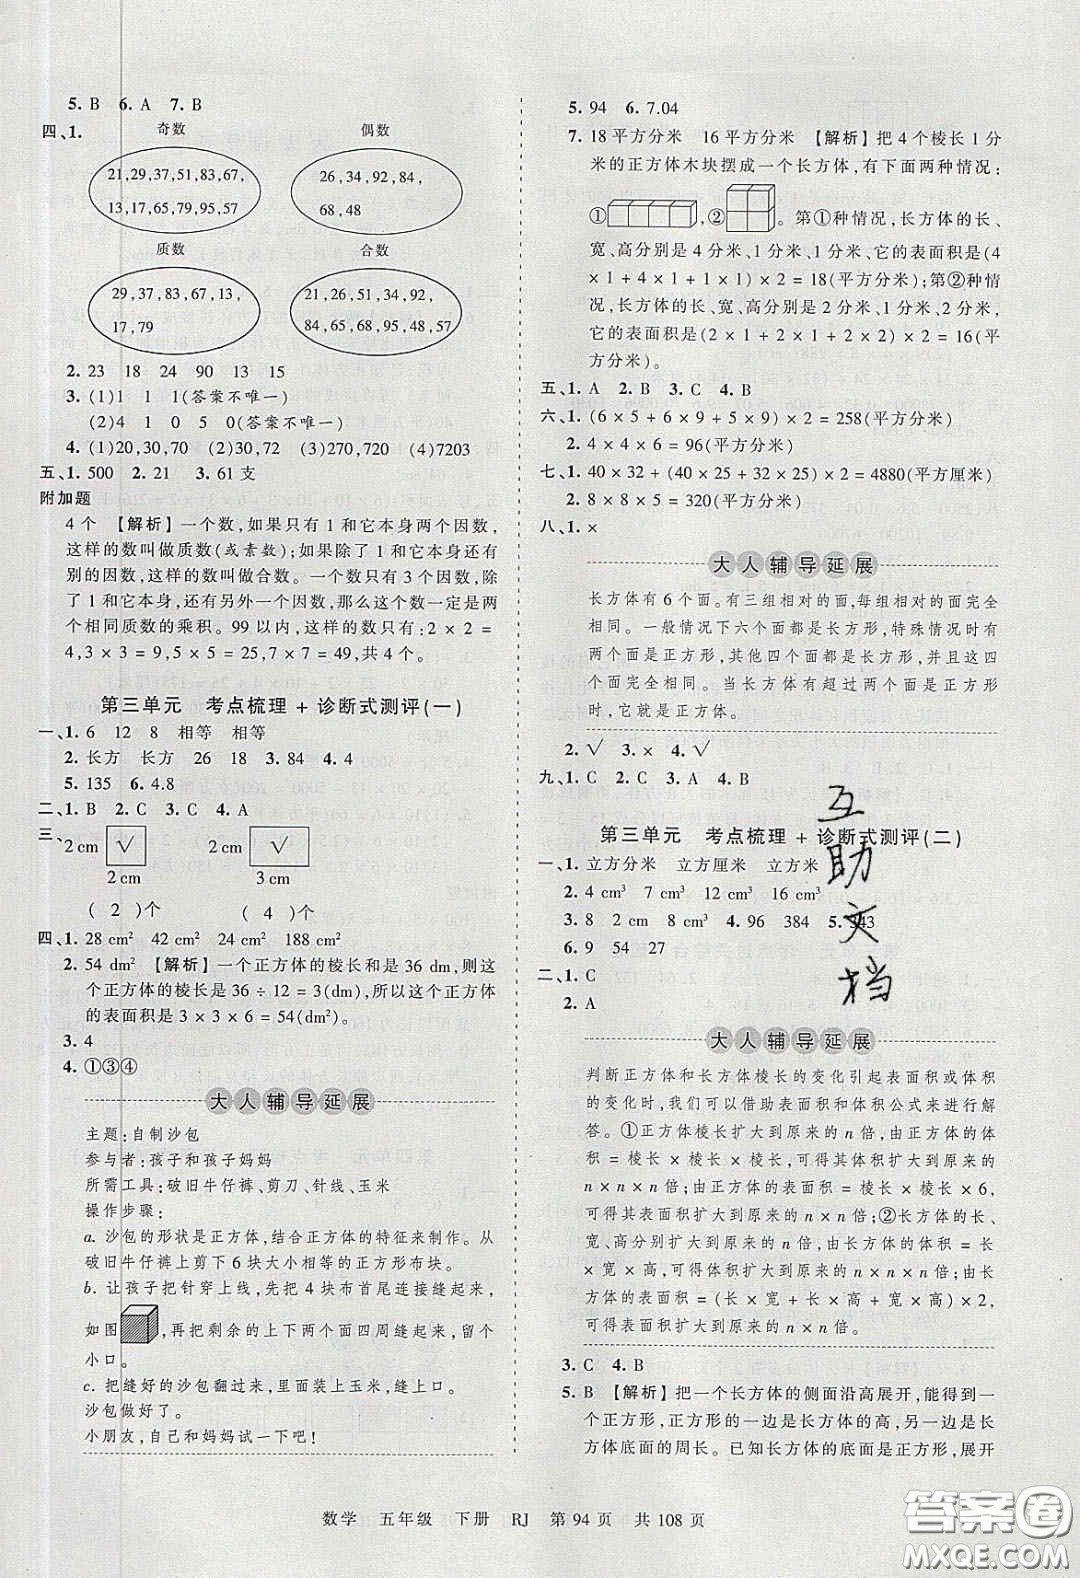 5. B 6. A 7. B
四、1. 奇数 偶数
21,29,37,51,83,67,
13,17,65,79,95,57
26,34,92,84,
68,48
质数 合数
29,37,83,67,13,
17,79
21,26,51,34,92,
84,65,68,95,48,57
2. 23 18 24 90 13 15
3. (1)1 1 1(答案不唯一)
(2)4 1 0 5 0(答案不唯一)
4. (1)20,30,70 (2)30,72 (3)70 (4)7203
五、1. 500 2. 21 3. 61 支
附加题
4 个 【解析】一个数,如果只有 1 和它本身两个因数,
这样的数叫做质数(或素数);如果除了 1 和它本身还有
别的因数,这样的数叫做合数。一个数只有 3 个因数,除
了 1 和它本身,还有另外一个因数,那么这个数一定是两
个相同质数的乘积。99 以内,这样的数有:2 × 2 =
4,3 × 3 = 9,5 × 5 = 25,7 × 7 = 49,共 4 个。
第三单元 考点梳理 + 诊断式测评(一)
一、1. 6 12 8 相等 相等
2. 长方 长方 26 18 3. 84 4. 4
5. 135 6. 4.8
二、1. B 2. C 3. C 4. A
三、2 cm √ 2 cm √
2 cm 3 cm
( 2 )个 ( 4 )个
四、1. 28 cm² 42 cm² 24 cm² 188 cm²
2. 54 dm² 【解析】一个正方体的棱长和是 36 dm,则这
个正方体的棱长是 36 ÷ 12 = 3(dm),所以这个正方体
的表面积是 3 × 3 × 6 = 54(dm²)。
3. 4
4. ①③④
大人辅导延展
主题:自制沙包
参与者:孩子和孩子妈妈
所需工具:破旧牛仔裤、剪刀、针线、玉米
操作步骤:
a. 沙包的形状是正方体,结合正方体的特征来制作。从
破旧牛仔裤上剪下 6 块大小相等的正方形布块。
b. 让孩子把针穿上线,先把 4 块布首尾连接缝起来,
如图,再把剩余的上下两个面四周缝起来,留个
小口。
c. 把缝好的沙包翻过来,里面装上玉米,缝好小口。
沙包做好了。
小朋友,自己和妈妈试一下吧!
5. 94 6. 7.04
7. 18 平方分米 16 平方分米 【解析】把 4 个棱长 1 分
米的正方体木块摆成一个长方体,有下面两种情况:
①,②。第①种情况,长方体的长、
宽、高分别是 4 分米、1 分米、1 分米,它的表面积是(4
× 1 + 4 × 1 + 1 × 1) × 2 = 18(平方分米);第②种情
况,长方体的长、宽、高分别是 2 分米、1 分米、2 分米,
它的表面积是(2 × 1 + 2 × 1 + 2 × 2) × 2 = 16(平
方分米)。
五、1. A 2. B 3. C 4. B
六、1. (6 × 5 + 6 × 9 + 5 × 9) × 2 = 258(平方分米)
2. 4 × 4 × 6 = 96(平方分米)
七、1. 40 × 32 + (40 × 25 + 32 × 25) × 2 = 4880(平方厘米)
2. 8 × 8 × 5 = 320(平方分米)
八、1. ×
大人辅导延展
长方体有 6 个面。有三组相对的面,每组相对的面完全
相同。一般情况下六个面都是长方形,特殊情况时有
两个面是正方形,其他四个面都是长方形,并且这四
个面完全相同。当长方体有超过两个面是正方形
时,它就是正方体。
2. √ 3. × 4. √
九、1. C 2. C 3. A 4. B
第三单元 考点梳理 + 诊断式测评(二)
一、1. 立方分米 立方厘米 立方米
2. 4 cm³ 8 cm³ 12 cm³ 16 cm³
3. 8 2 cm 8 cm³ 4. 96 384 5. 343
6. 9 54 27
二、1. C
2. A
大人辅导延展
判断正方体和长方体棱长的变化引起表面积或体积
的变化时,我们可以借助表面积和体积公式来进行解
答。①正方体棱长扩大到原来的 n 倍,由正方体的体
积 = 棱长 × 棱长 × 棱长,可得其体积扩大到原来的
n × n × n 倍;由正方体的表面积 = 棱长 × 棱长 × 6,
可得其表面积扩大到原来的 n × n 倍;②长方体的长、
宽、高分别扩大到原来的 n 倍,由长方体的体积 = 长
× 宽 × 高,可得体积扩大到原来的 n × n × n 倍;由长
方体的表面积 = (长 × 宽 + 长 × 高 + 宽 × 高) × 2,
可得表面积扩大到原来的 n × n 倍。
3. C 4. B
5. B 【解析】把一个长方体的侧面沿高展开,能得到一
个正方形,正方形的一边是长方体的高,另一边是长
方体底面的周长。已知长方体的底面是正方形,展开
互
助
文
档
数学 五年级 下册 RJ 第 94 页 共 108 页
答案圈
MXQE.COM